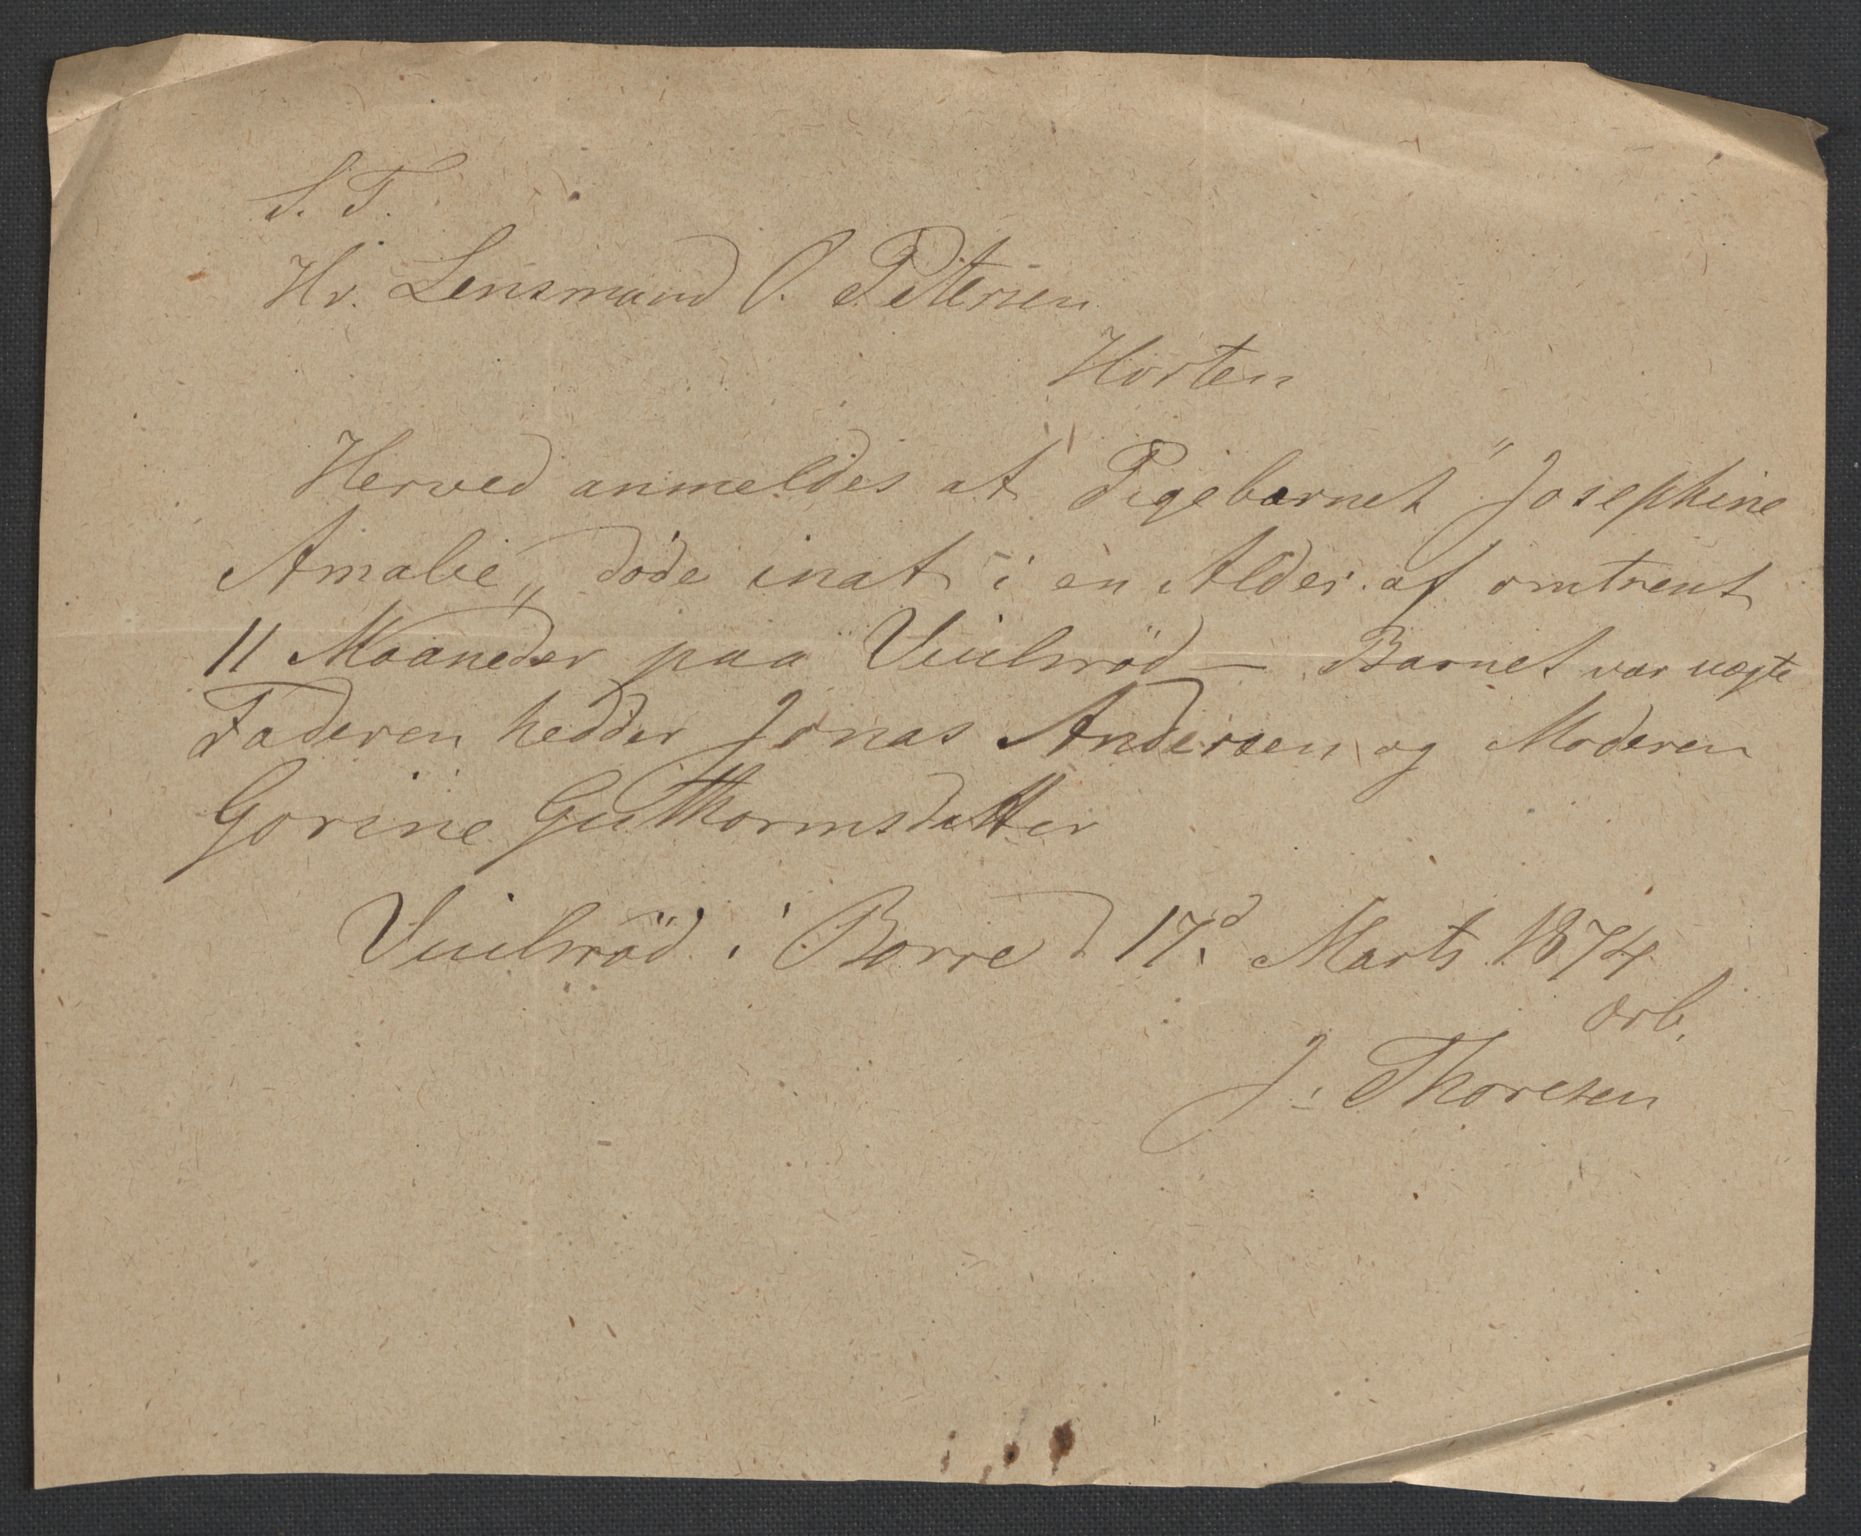 S. T.
Hr. Lensmand O. Petersen
Horten
Herved anmeldes at Pigebarnet "Josephine
Amalie„ døde inat i en Alder af omtrent
11 Maaneder paa – Barnet var uægte
Faderen hedder Jonas Andersen og Moderen
Gorine Guthormsdatter
i Borre d 17d Marts 1874
ærb.
J. Thoresen